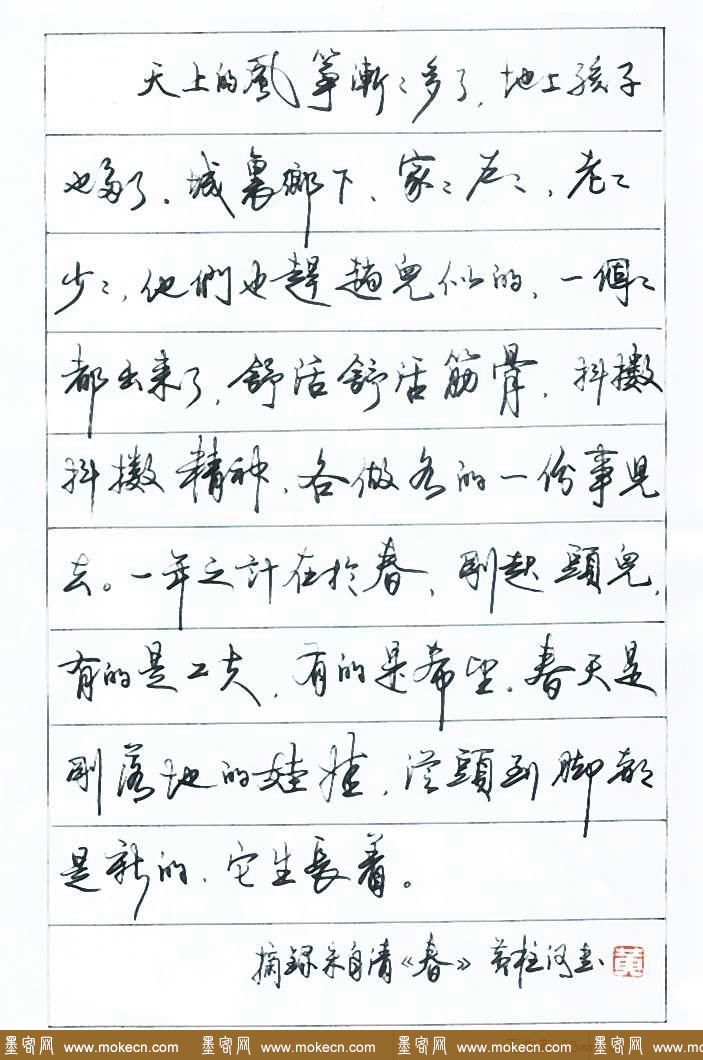 天上的風箏漸〻多了，地上孩子
也多了。城裏鄉下，家〻戶〻，老〻
少〻，他們也趕趟兒似的，一個〻
都出來了，舒活舒活筋骨，抖擻
抖擻精神，各做各的一份事兒
去。一年之計在於春，剛起頭兒，
有的是工夫，有的是希望。春天是
剛落地的娃娃，從頭到腳都
是新的，它生長着。
摘錄朱自清《春》 黃柱河書
黃
墨客网 www.mokecn.com 墨客网 www.mokecn.com 墨客网 www.mokecn.com 墨客网 www.mokecn.com